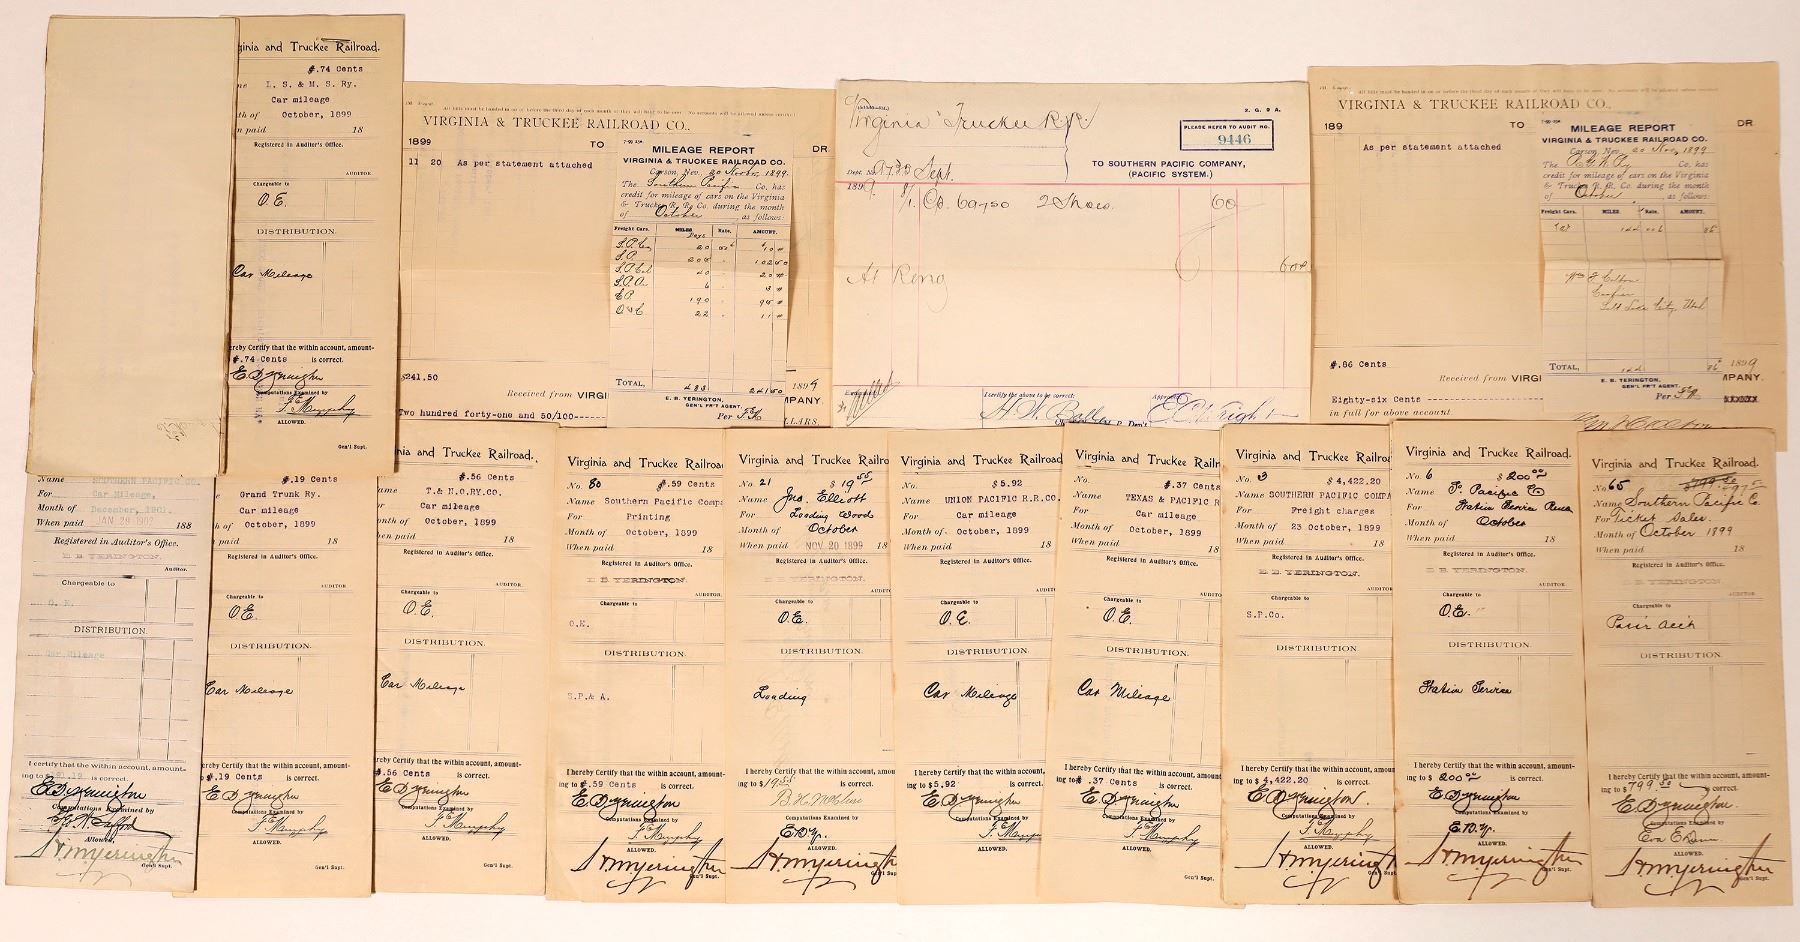 ginia and Truckee Railroad.
$.74 Cents
me L. S. & M. S. Ry.
Car mileage
nth of October, 1899
n paid 18
Registered in Auditor's Office.
AUDITOR.
Chargeable to
O.E.
DISTRIBUTION.
Car Mileage
ereby Certify that the within account, amount-
$.74 Cents is correct.
E B Yerington
Computations Examined by
F Murphy
ALLOWED.
Gen'l Supt.
All bills must be handed in on or before the third day of each month or they will have to be
VIRGINIA & TRUCKEE RAILROAD CO.,
1899 TO DR.
11 20 As per statement attached
$241.50
Received from VIRGI
1899
MPANY.
Two hundred forty-one and 50/100------
LLARS.
MILEAGE REPORT
VIRGINIA & TRUCKEE RAILROAD CO.
Carson, Nev. 20 Novbr, 1899.
The Southern Pacific Co. has
credit for mileage of cars on the Virginia
& Truckee R. R. Co. during the month
of October, as follows:
Freight Cars. MILES. Rate. AMOUNT.
Days
20 10
204 102 50
40 20
6 3
190 95
22 11
TOTAL, 483 241 50
E. B. YERINGTON,
GEN'L FR'T AGENT.
Per
S. G. 9 A.
Virginia Truckee R R
PLEASE REFER TO AUDIT NO.
9446
TO SOUTHERN PACIFIC COMPANY,
(PACIFIC SYSTEM.)
Dept. No. Sept.
189
60750 2 Shoes. 60
At Reno
I certify the above to be correct:
Approved
E C Wright
VIRGINIA & TRUCKEE RAILROAD CO.,
189 TO DR
As per statement attached
$.86 Cents
1899
Received from VIRGI
MPANY.
Eighty-six Cents
XXXXXX
in full for above account.
MILEAGE REPORT
VIRGINIA & TRUCKEE RAILROAD CO.
Carson, Nev. 20 Nov, 1899
The Co. has
credit for mileage of cars on the Virginia
& Truckee R. R. Co. during the month
of October, as follows:
Freight Cars. MILES. Rate. AMOUNT.
144 006 86
Salt Lake City, Utah
TOTAL, 144 86
E. B. YERINGTON,
GEN'L FR'T AGENT.
Per
Name SOUTHERN PACIFIC CO.
For Car Mileage,
Month of December, 1901.
When paid JAN 29 1902 188
Registered in Auditor's Office.
E B YERINGTON.
Auditor.
Chargeable to
O. E.
DISTRIBUTION.
Car Mileage
I certify that the within account, amount-
ing to is correct.
E B Yerington
Computations Examined by
Allowed,
H M Yerington
Gen'l Supt.
$.19 Cents
Grand Trunk Ry.
Car mileage
h of October, 1899
n paid 18
Registered in Auditor's Office.
AUDITOR
Chargeable to
O.E.
DISTRIBUTION.
Car Mileage
ereby Certify that the within account, amount-
$.19 Cents is correct.
E B Yerington
Computations Examined by
F Murphy
ALLOWED.
Gen'l Supt.
nia and Truckee Railroad.
$.56 Cents
ame T.& N.O.RY.CO.
Car mileage
onth of October, 1899
en paid 18
Registered in Auditor's Office.
AUDITOR.
Chargeable to
O.E.
DISTRIBUTION.
Car Mileage
ereby Certify that the within account, amount-
$.56 Cents is correct.
E B Yerington
Computations Examined by
F Murphy
ALLOWED.
Gen'l Supt.
Virginia and Truckee Railroa
No. 80 $.59 Cents
Name Southern Pacific Compa
For Printing
Month of October, 1899
When paid 18
Registered in Auditor's Office.
E B YERINGTON.
AUDITO
Chargeable to
O.E.
DISTRIBUTION.
S.P.& A.
I hereby Certify that the within account, amoun
ing to $.59 Cents is correct.
E B Yerington
Computations Examined by
F Murphy
ALLOWED.
H M Yerington
Gen'l Supt.
Virginia and Truckee Railro
No. 21 $ 19 55
Name Jno. Elliott
For Loading Wood
Month of October
When paid NOV 20 1899 18
Registered in Auditor's Office.
E B YERINGTON.
AUDIT
Chargeable to
O.E.
DISTRIBUTION.
Loading
I hereby Certify that the within account, amou
ing to $19 55 is correct.
Computations Examined by
E.B.Y.
ALLOWED
H M Yerington
Gen'l Supt.
Virginia and Truckee Railroa
No. $5.92
Name UNION PACIFIC R.R.CO.
For Car mileage
Month of. October, 1899
When paid 18
Registered in Auditor's Office.
AUDITO
Chargeable to
O.E.
DISTRIBUTION.
Car Mileage
I hereby Certify that the within account, amoun
ing to $5.92 is correct.
E B Yerington
Computations Examined by
F Murphy
ALLOWED
Gen'l Supt.
Virginia and Truckee Railr
No. $.37 Cents
Name TEXAS & PACIFIC R
For Car mileage
Month of October, 1899
When paid 18
Registered in Auditor's Office.
AUDIT
Chargeable to
O.E.
DISTRIBUTION.
Car Mileage
I hereby Certify that the within account, amou
ing to $ .37 Cents is correct.
E B Yerington
Computations Examined by
F Murphy
ALLOWED.
Gen'l Supt.
Virginia and Truckee Railroa
No. 3 $ 4,422.20
Name SOUTHERN PACIFIC COMPA
For Freight charges
Month of 23 October, 1899
When paid 18
Registered in Auditor's Office.
E B YERINGTON.
AUDITOR
Chargeable to
S.P.Co.
DISTRIBUTION
I hereby Certify that the within account, amount
ing to $ 4,422.20 is correct.
E B Yerington.
Computations Examined by
F Murphy
ALLOWED.
H M Yerington
Gen'l Supt.
Virginia and Truckee Railroad.
No. 6 $ 200 00
Name S. Pacific Co
For Station Service Reno
Month of October
When paid 18
Registered in Auditor's Office.
E B YERINGTON.
AUDITOR.
Chargeable to
O.E.
DISTRIBUTION.
Station Service
I hereby Certify that the within account, amount-
ing to $ 200 00 is correct.
E B Yerington
Computations Examined by
E.B.Y.
ALLOWED.
H M Yerington
Gen'l Supt.
Virginia and Truckee Railroad.
No. 65
Name Southern Pacific Co.
For Ticket Sales.
Month of October 1899
When paid 18
Registered in Auditor's Office.
E B YERINGTON.
AUDITOR.
Chargeable to
DISTRIBUTION.
I hereby Certify that the within account, amount-
ing to $ 799. is correct.
E B Yerington.
Computations Examined by
ALLOWED.
H M Yerington
Gen'l Supt.